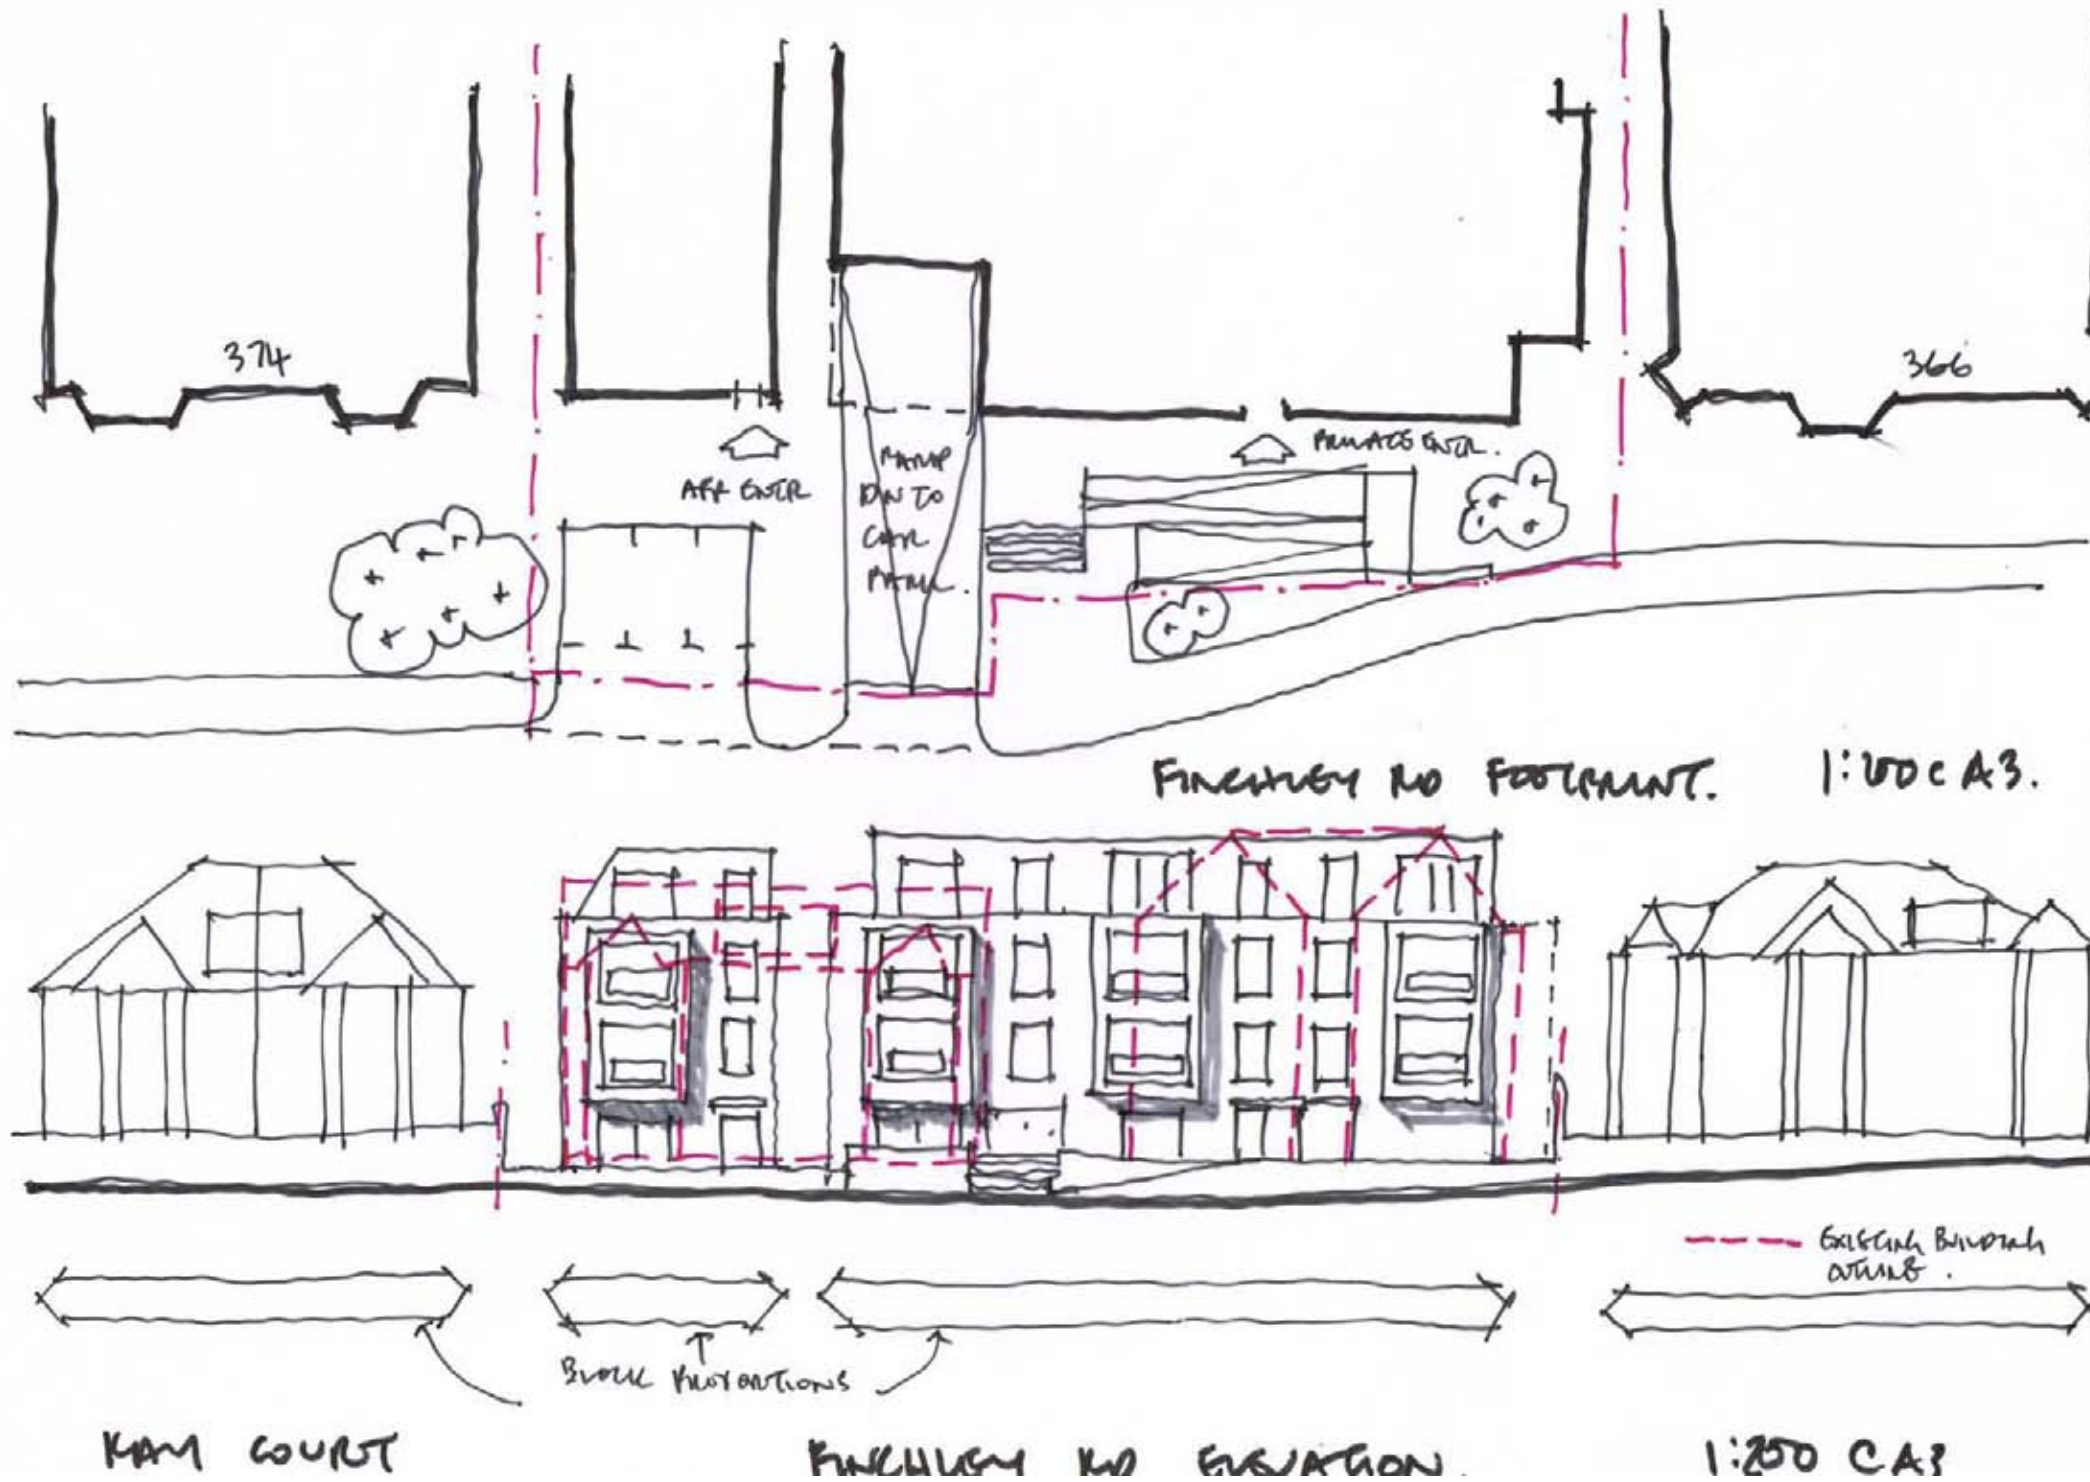 374
366
PRIVATE ENTR.
AFF ENTR
RAMP
DN TO
CAR
PARK.
FINCHLEY RD FOOTPRINT. 1:200 @ A3.
EXISTING BUILDING
OUTLINE.
BLOCK PROPORTIONS
KAM COURT
FINCHLEY RD ELEVATION.
1:200 @ A3